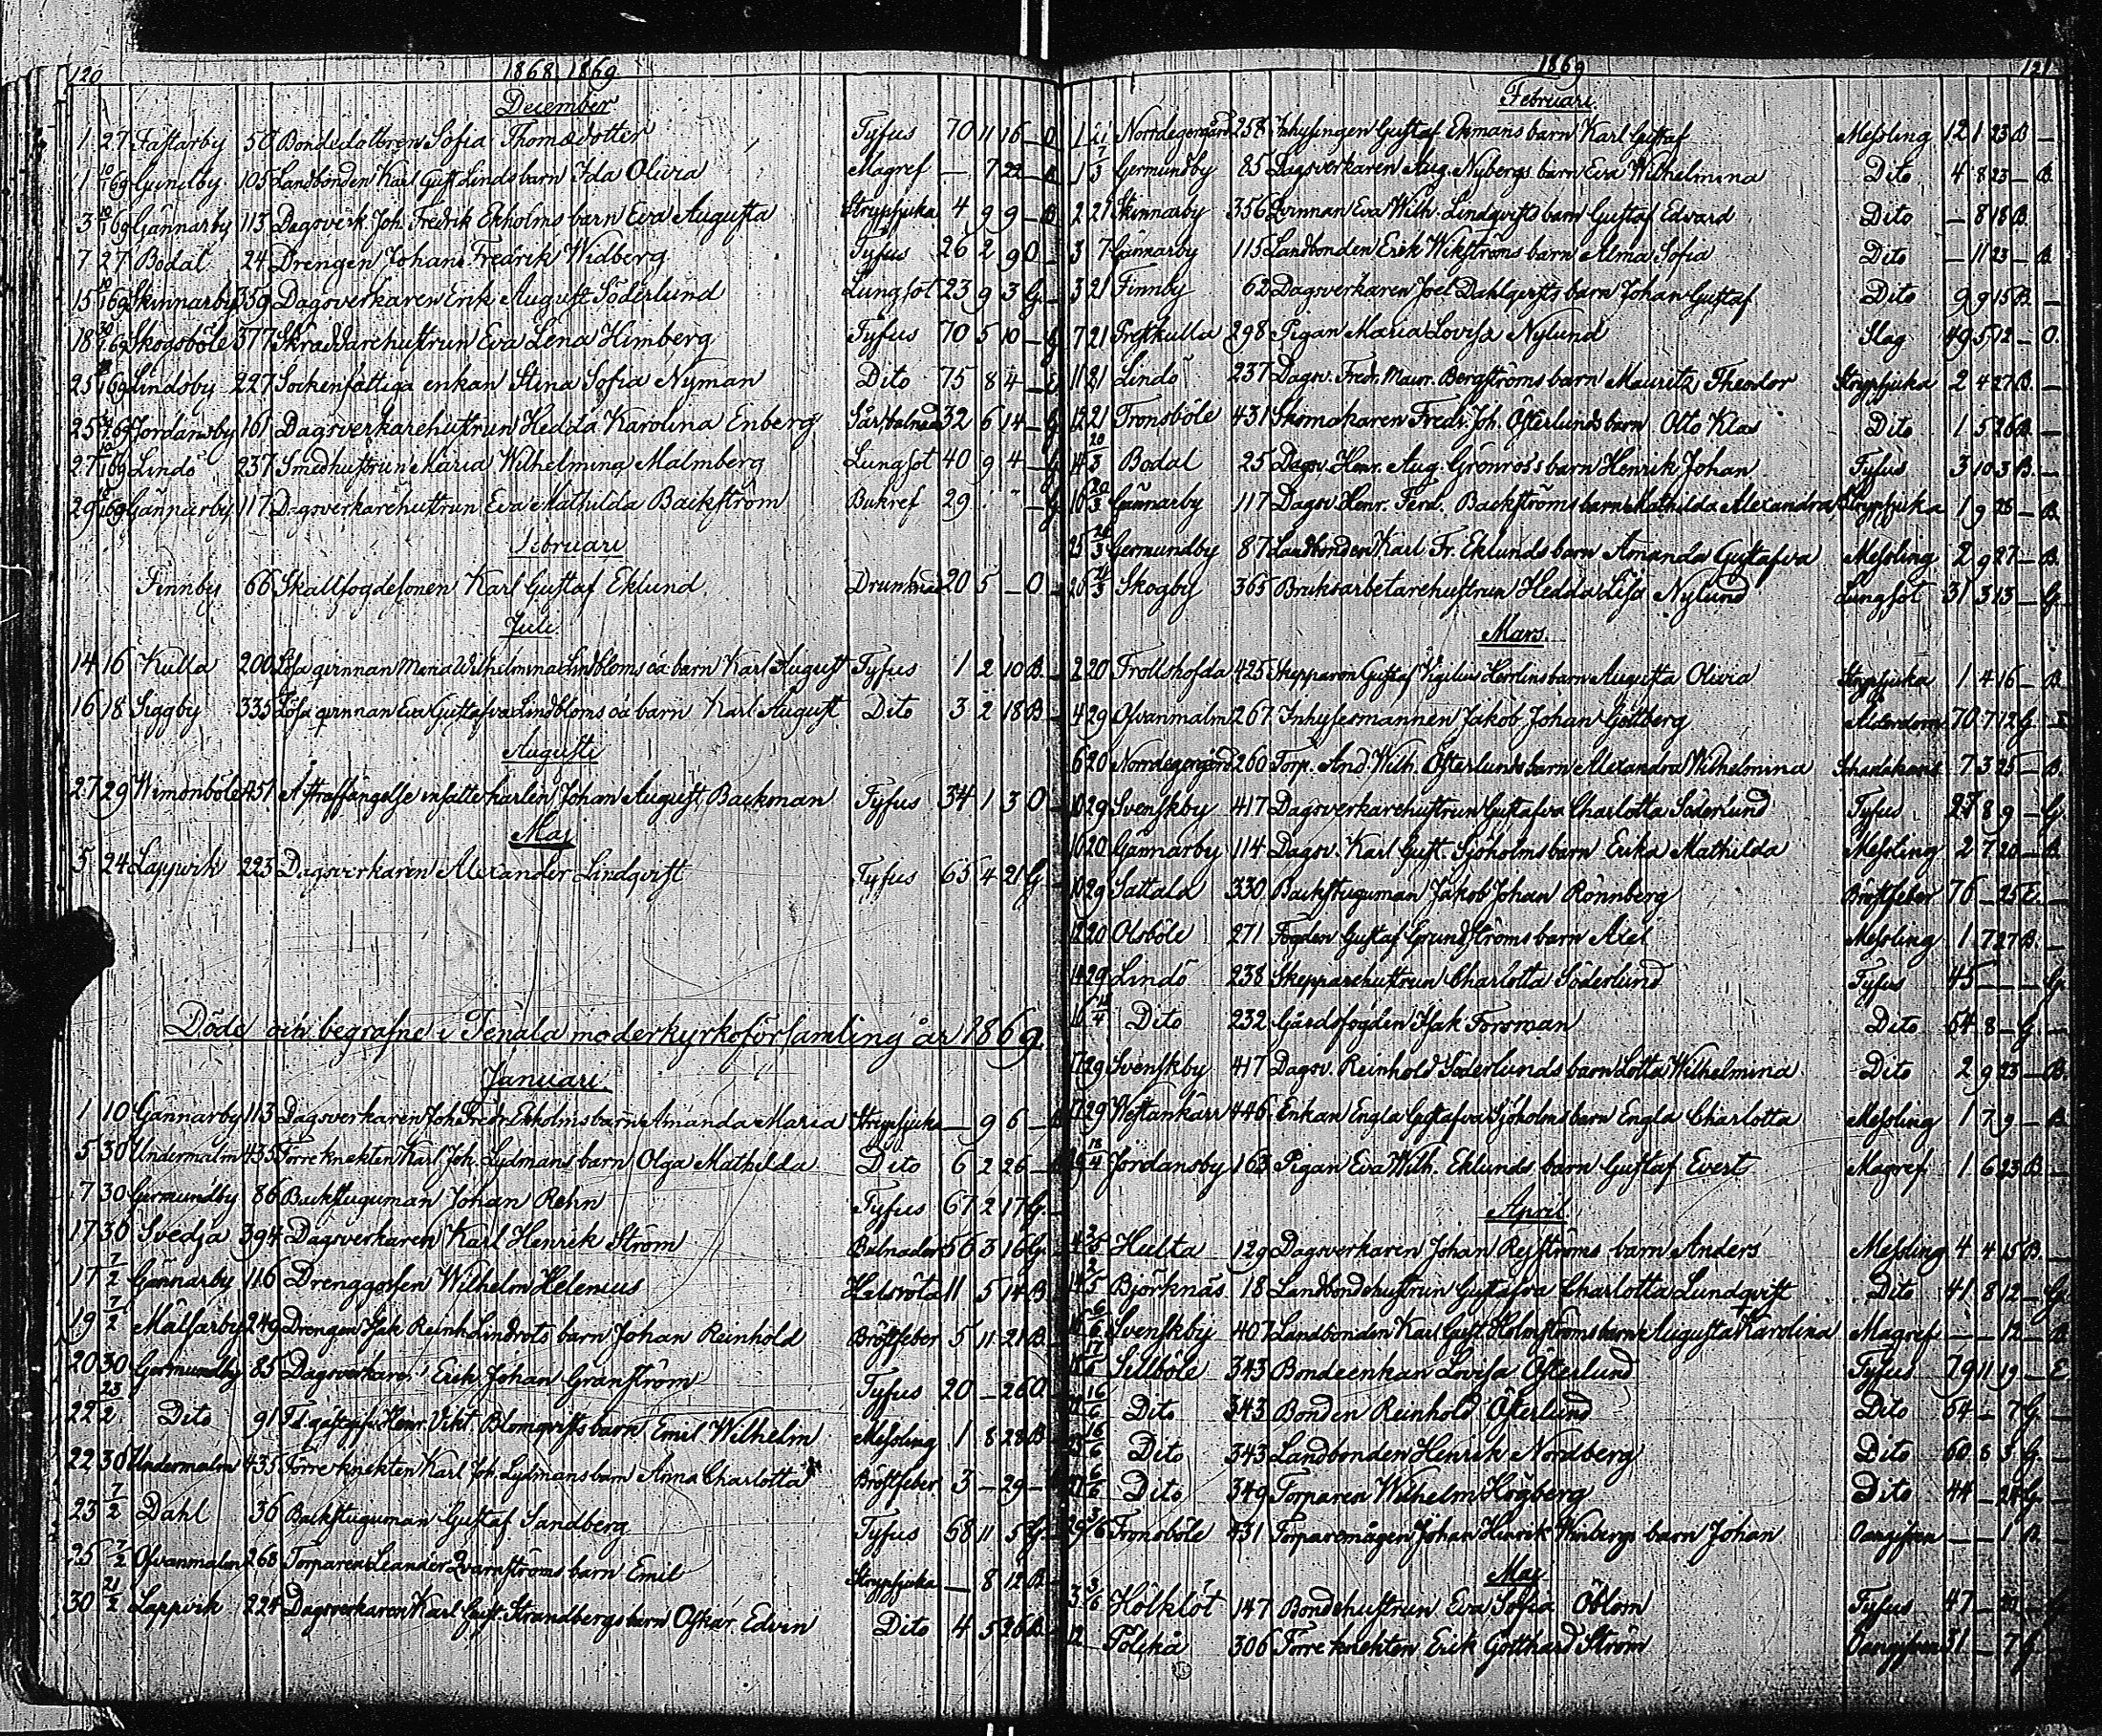 120
1868 1869
December
1 27 Fastarby 50 Bondedottren Sofia Thomædotter Tyfus 70 11 16 - O
1 10/1 69 Gundby 105 Landbonden Karl Gust Lindsbarn Ida Olivia Magref — 7 22 -
3 10/1 69 Gännarby 113 Dagsverk. Joh. Fredrik Ekholms barn Eva Augusta Strypsjuka 4 9 9 - B
7 27 Bodal 24 Drengen Johan Fredrik Widberg Tyfus 26 2 9 O
15 10/1 69 Skinnarby 359 Dagsverkaren Erik August Söderlund Lungsot 23 9 3 G.
18 30/1 69 Skogsböle 377 Skräddarehustrun Eva Lena Himberg Tyfus 70 5 10 - G
25 69 Lindsby 227 Sockenfattiga enkan Stina Sofia Nyman Dito 75 8 4 -
25 69 Jordansby 161 Dagsverkarehustrun Hedda Karolina Enberg 32 6 14 - G
27 10/1 69 Lindö 237 Smedhustrun Maria Wilhelmina Malmberg Lungsot 40 9 4 - G
29 69 Gännarby 117 Dagsverkarehustrun Eva Mathilda Backström Bukref 29 " " - G
Februari
Finnby 66 Skallfogdesonen Karl Gustaf Eklund Drunknad 20 5 - O
Juli
14 16 Kulla 200 Lösa qvinnan Maria Wilhelmina Lindbloms oä barn Karl August Tyfus 1 2 10 B.
16 18 Siggby 335 Lösa qvinnan Eva Gustafva Lindbloms oä barn Karl August Dito 3 2 18 B
Augusti
27 29 Wimonböle 457 Aftraffängelse insatte karlen Johan August Backman Tyfus 34 1 3 O
Maj
5 24 Lappvik 223 Dagsverkaren Alexander Lindqvist Tyfus 65 4 21 G
Döde och begrafne i Tenala moderkyrkoförsamling år 1869
Januari.
1 10 Gännarby 113 Dagsverkaren Joh. Fredr. Ekholms barn Amanda Maria Strypsjuka — 9 6 -
5 30 Undermalm 435 Förre knekten Karl Joh. Lydmans barn Olga Mathilda Dito 6 2 26 -
7 30 Germundby 86 Backstuguman Johan Rehn Tyfus 67 2 17 G.
17 30 Svedja 394 Dagsverkaren Karl Henrik Ström Bulnader 56 3 16 G.
17 7/2 Gännarby 116 Drenggossen Wilhelm Helenius Halsröta 11 5 14 B
19 7/2 Målsarby 249 Drengen Isak Reinh Lindrots barn Johan Reinhold Bröstfeber 5 11 21 B.
20 30 Germundby 85 Dagsverkare Erik Johan Granström Tyfus 20 - 26 O.
22 23/2 Dito 91 Henr. Vikt. Blomqvists barn Emil Wilhelm Messling 1 8 28 B
22 30 Undermalm 435 Förre knekten Karl Joh. Lydmans barn Anna Charlotta Bröstfeber 3 - 29 -
23 7/2 Dahl 36 Backstuguman Gustaf Sandberg Tyfus 68 11 5 G
25 7/2 Ofvanmalm 268 Torparen Leander Qvarnströms barn Emil Strypsjuka — 8 12 B
30 21/2 Lappvik 224 Dagsverkaren Karl Gust. Strandbergs barn Oskar Edvin Dito 4 5 26 B
1869
121
Februari
1 21 Norrdegergård 258 Inhysingen Gustaf Ekmans barn Karl Gustaf Messling 12 1 23 B -
1 7/3 Germundby 85 Dagsverkaren Aug. Nybergs barn Eva Wilhelmina Dito 4 8 23 - B.
2 21 Skinnarby 356 Qvinnan Eva Wilh. Lindqvists barn Gustaf Edvard Dito — 8 18 B.
3 7 Gännarby 115 Landbonden Erik Wikströms barn Alma Sofia Dito — 11 23 - B
3 21 Finnby 62 Dagsverkaren Joel Dahlqvists barn Johan Gustaf Dito 9 9 15 B. -
7 21 Prestkulla 298 Pigan Maria Lovisa Nylund Slag 49 5 12 - O.
11 21 Lindö 237 Dagsv. Fredr. Maur. Bergströms barn Mauritz Theodor Strypsjuka 2 4 27 B. -
12 21 Tronsböle 431 Skomakaren Fredr. Joh. Österlunds barn Otto Klas Dito 1 5 26 B. -
14 20/3 Bodal 25 Dagsv. Henr. Aug. Grönroos barn Henrik Johan Tyfus 3 10 3 B. -
16 20/3 Gännarby 117 Dagsv. Henr. Ferd. Backströms barn Mathilda Alexandra Strypsjuka 1 9 26 - B
25 26/3 Germundby 87 Landbonden Karl Fr. Eklunds barn Amanda Gustafva Messling 2 9 27 - B.
26 21/3 Skogby 365 Bruksarbetarehustrun Hedda Lisa Nylund Lungsot 31 3 13 - G.
Mars.
2 20 Trollshofda 425 Skepparen Gustaf Vigilius Herlins barn Augusta Olivia Strypsjuka 1 4 16 - B
4 29 Ofvanmalm 267 Inhysesmannen Jakob Johan Göttberg Ålderdom 70 7 12 G.
6 20 Norrdegergård 260 Torp. And. Wilh. Österlunds barn Alexandra Wilhelmina Scharlakans 7 3 25 - B.
10 29 Svenskby 417 Dagsverkarehustrun Gustafva Charlotta Söderlund Tyfus 27 8 9 - G.
10 20 Gännarby 114 Dagsv. Karl Gust. Sjöholms barn Erika Mathilda Messling 2 7 20 - B.
10 29 Sattala 330 Backstuguman Jakob Johan Rönnberg Bröstfeber 76 - 25 E.
12 20 Olsböle 271 Fogden Gustaf Grundströms barn Axel Messling 1 7 27 B.
14 29 Lindö 238 Skepparehustrun Charlotta Söderlund Tyfus 45 — — G.
16 18/4 Dito 232 Gårdsfogden Isak Forsman Dito 54 8 - G. -
17 29 Svenskby 417 Dagsv. Reinhold Söderlunds barn Lotta Wilhelmina Dito 2 9 23 - B.
17 29 Westankärr 446 Enkan Engla Gustafva Sjöholms barn Engla Charlotta Messling 1 7 9 - B.
18/4 Jordansby 163 Pigan Eva Wilh. Eklunds barn Gustaf Evert Magref 1 6 23 B. -
April.
Hulta 129 Dagsverkaren Johan Reyströms barn Anders Messling 4 4 15 B. -
14 2/5 Björknäs 18 Landbondehustrun Gustafva Charlotta Lundqvist Dito 41 8 12 - G.
Svenskby 407 Landbonden Karl Gust. Holmströms barn Augusta Karolina Magref — — 12 - B
Sillböle 343 Bondeenkan Lovisa Österlund Tyfus 79 11 19 - E
16/6 Dito 343 Bonden Reinhold Österlund Dito 54 - 7 G. -
16/6 Dito 343 Landbonden Henrik Nordberg Dito 60 8 3 G. -
27 6/6 Dito 349 Torparen Wilhelm Högberg Dito 44 - 24 G. -
29 Tronsböle 431 Torparemågen Johan Henrik Winbergs barn Johan Oangifven — — 1 B. -
Maj
3 3/6 Hölklöt 147 Bondehustrun Eva Sofia Öblom Tyfus 47 - 20 -
12 Pölskä 306 Förre knekten Erik Gotthard Ström Oangifven 31 - 7 G.